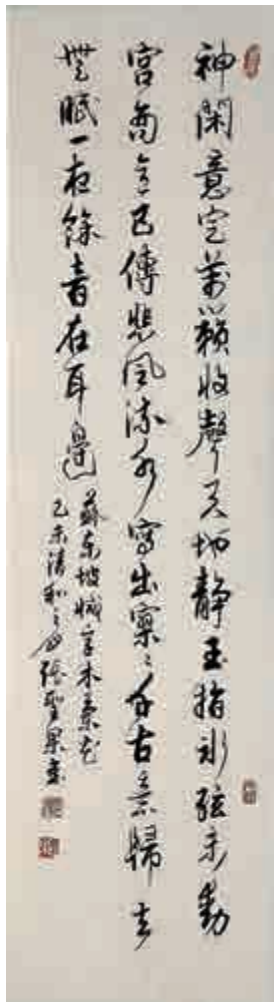 神閑意定萬籟收聲天地静玉指冰弦未動
宮商意已傳悲風流水寫出寥〻千古意歸去
無眠一夜餘音在耳邊
蘇東坡減字木蘭花
乙未清和之月張聖果書